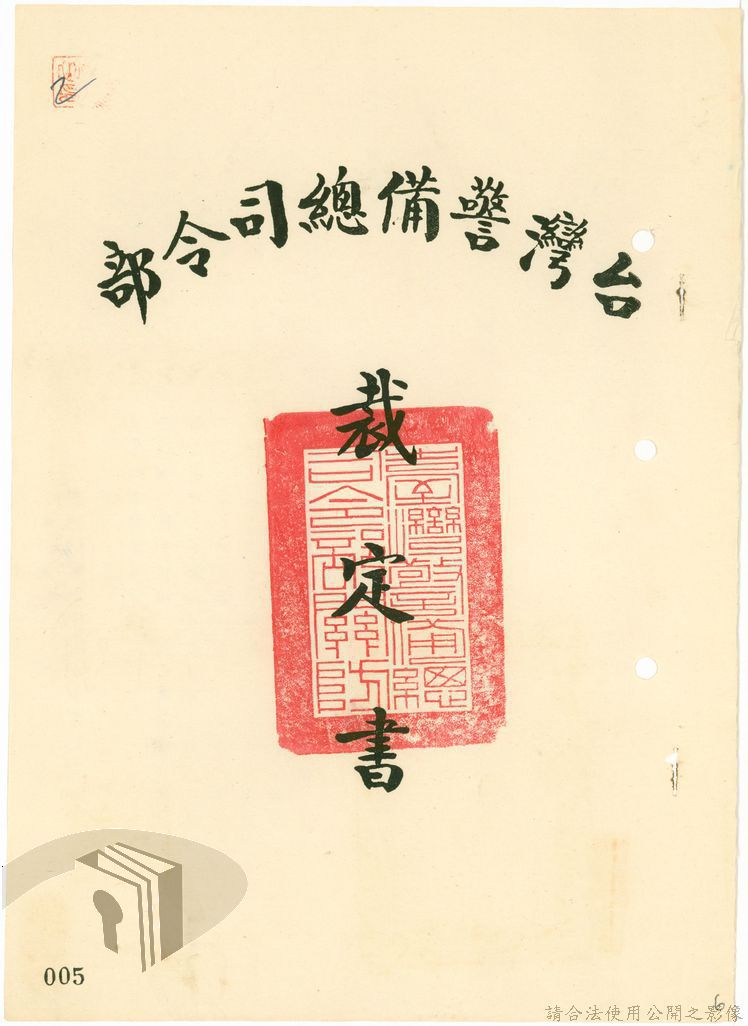 台灣警備總司令部
裁定書
台灣警備總司令部關防
005
6
請合法使用公開之影像